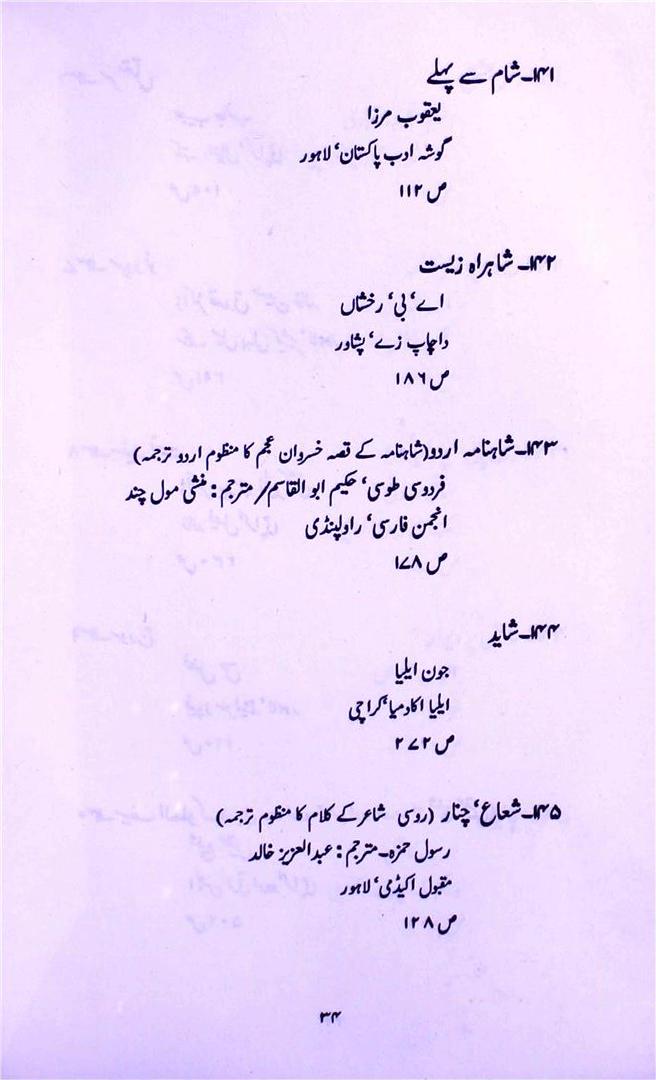 ۱۴۱۔ شام سے پہلے
یعقوب مرزا
گوشہ ادب پاکستان، لاہور
ص ۱۱۲
۱۴۲۔ شاہراہ زیست
اے، بی، رخشاں
داچاپ زے، پشاور
ص ۱۸۶
۱۴۳۔ شاہنامہ اردو (شاہنامہ کے قصہ خسروان عجم کا منظوم اردو ترجمہ)
فردوسی طوسی، حکیم ابو القاسم/ مترجم: منشی مول چند
انجمن فارسی، راولپنڈی
ص ۱۷۸
۱۴۴۔ شاید
جون ایلیا
ایلیا اکادمیا، کراچی
ص ۲۷۲
۱۴۵۔ شعاع، چنار (روسی شاعر کے کلام کا منظوم ترجمہ)
رسول حمزہ۔ مترجم: عبدالعزیز خالد
مقبول اکیڈمی، لاہور
ص ۱۲۸
۳۴